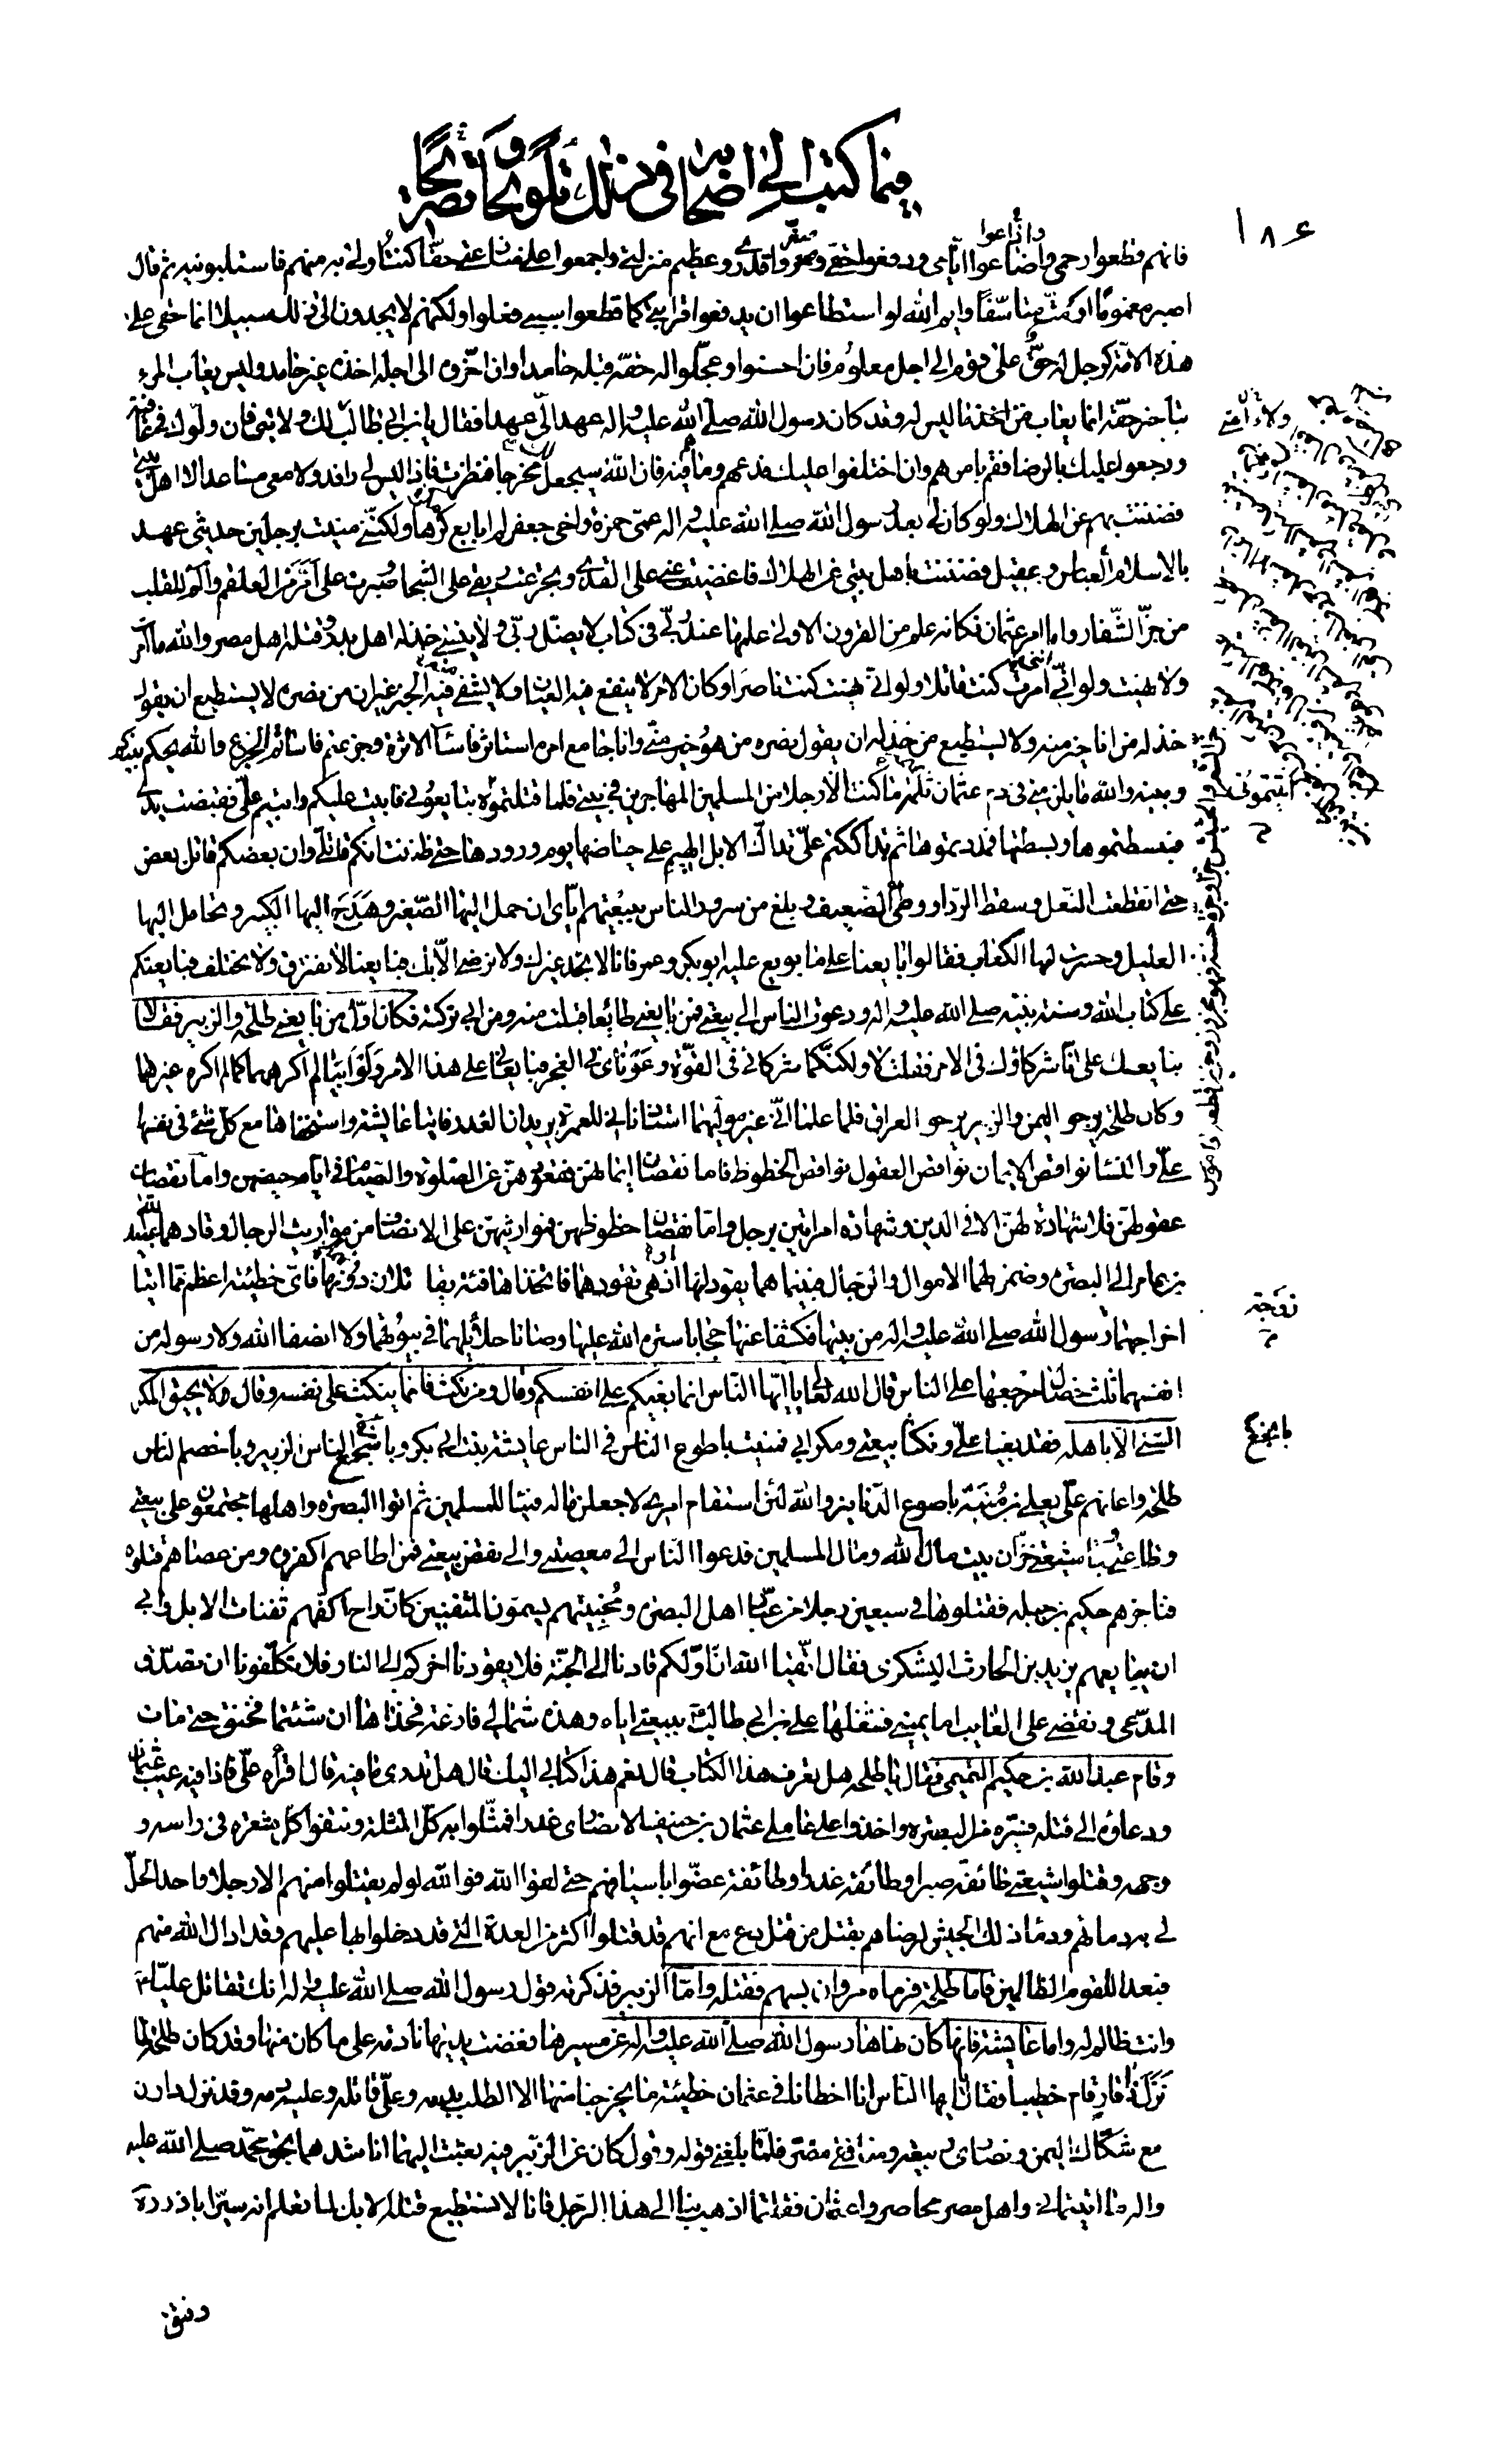 فيما كتب الى اصحابه في ذلك تلويحا وتصريحا
١٨٤
فانهم قطعوا رحمي واضاعوا ايامي ودفعوا حقي وصغروا قدري وعظيم منزلتي واجمعوا على منازعتي حقا كنت اولى به منهم فاستلبونيه ثم قال
اصبر مغموما او مت متاسفا وايم الله لو استطاعوا ان يدفعوا قرابتي كما قطعوا سببي فعلوا ولكنهم لا يجدون الى ذلك سبيلا انما حقي على
هذه الامة كرجل له حق على قوم الى اجل معلوم فان احسنوا وعجلوا له حقه قبله حامدا وان اخروه الى اجله اخذه غير حامد وليس يعاب المرء
بتاخير حقه انما يعاب من اخذ ما ليس له وقد كان رسول الله صلى الله عليه واله عهد الي عهدا فقال يابن ابي طالب لك ولاء امتي فان ولوك في عافية
ورجعوا عليك بالرضا فقم بامرهم وان اختلفوا عليك فدعهم وما هم فيه فان الله سيجعل لك مخرجا فنظرت فاذا ليس لي رافد ولا معي مساعد الا اهل بيتي
فضننت بهم عن الهلاك ولو كان لي بعد رسول الله صلى الله عليه واله عمي حمزة واخي جعفر لم ابايع كرها ولكنني منيت برجلين حديثي عهد
بالاسلام العباس وعقيل فضننت باهل بيتي عن الهلاك فاغضيت عيني على القذى وتجرعت ريقي على الشجا وصبرت على امر من العلقم والم للقلب
من حز الشفار واما امر عثمان فكانه علم من القرون الاولى علمها عند ربي في كتاب لا يضل ربي ولا ينسى خذله اهل بدر وقتله اهل مصر والله ما امرت
ولا نهيت ولو انني امرت كنت قاتلا ولو اني نهيت كنت ناصرا وكان الامر لا ينفع فيه العيان ولا يشفي منه الخبر غير ان من نصره لا يستطيع ان يقول
خذله من انا خير منه ولا يستطيع من خذله ان يقول نصره من هو خير مني وانا جامع امره استاثر فاساء الاثرة وجزعتم فاساتم الجزع والله يحكم بينكم
وبينه والله ما يلزمني في دم عثمان ثلمة ما كنت الا رجلا من المسلمين المهاجرين في بيتي فلما قتلتموه اتيتموني تبايعوني فابيت عليكم وابيتم علي فقبضت يدي
فبسطتموها وبسطتها فمددتموها ثم تداككتم علي تداك الابل الهيم على حياضها يوم ورودها حتى ظننت انكم قاتلي وان بعضكم قاتل بعض
حتى انقطعت النعل وسقط الرداء ووطئ الضعيف وبلغ من سرور الناس ببيعتهم اياي ان حمل اليها الصغير وهدج اليها الكبير وتحامل اليها
العليل وحسرت لها الكعاب فقالوا بايعنا على ما بويع عليه ابو بكر وعمر فانا لا نجد غيرك ولا نرضى الا بك بايعنا لا نفترق ولا نختلف فبايعتكم
على كتاب الله وسنة نبيه صلى الله عليه واله ودعوت الناس الى بيعتي فمن بايعني طائعا قبلت منه ومن ابى تركته فكان اول من بايعني طلحة والزبير فقالا
نبايعك على انا شركاؤك في الامر فقلت لا ولكنكما شركائي في القوة وعوناي في العجز فبايعاني على هذا الامر ولو ابيا لم اكرههما كما لم اكره غيرهما
وكان طلحة يرجو اليمن والزبير يرجو العراق فلما علما اني غير موليهما استاذناني للعمرة يريدان الغدر فاتيا عايشة واستخفاها مع كل شيء في نفسها
علي والنساء نواقص الايمان نواقص العقول نواقص الحظوظ فاما نقصان ايمانهن فقعودهن عن الصلوة والصيام في ايام حيضهن واما نقصان
عقولهن فلا شهادة لهن الا في الدين وشهادة امراتين برجل واما نقصان حظوظهن فمواريثهن على الانصاف من مواريث الرجال وقادهما عبيد الله
بن عامر الى البصرة وضمن لهما الاموال والرجال فبينما هما يقودانها اذ هي تقودهما فاتخذاها فئة يقاتلان دونها فاي خطيئة اعظم مما اتيا
اخراجهما زوجة رسول الله صلى الله عليه واله من بيتها فكشفا عنها حجابا ستره الله عليها وصانا حلائلهما في بيوتهما ولا انصفا الله ولا رسوله من
انفسهما ثلث خصال مرجعها على الناس قال الله تعالى يا ايها الناس انما بغيكم على انفسكم وقال ومن نكث فانما ينكث على نفسه وقال ولا يحيق المكر
السيئ الا باهله فقد بغيا علي ونكثا بيعتي ومكرا بي فمنيت باطوع الناس في الناس عايشة بنت ابي بكر وباشجع الناس الزبير وباخصم الناس
طلحة واعانهم علي يعلى بن منية باصوع الدنانير والله لئن استقام امري لاجعلن ماله فيئا للمسلمين ثم اتوا البصرة واهلها مجتمعون على بيعتي
وطاعتي وبها شيعتي خزان بيت مال الله ومال المسلمين فدعوا الناس الى معصيتي والى نقض بيعتي فمن اطاعهم اكفروه ومن عصاهم قتلوه
فناجزهم حكيم بن جبلة فقتلوها في سبعين رجلا من عباد اهل البصرة ومخبتيهم يسمون المثفنين كان راح اكفهم ثفنات الابل وابى
ان يبايعهم يزيد بن الحارث اليشكري فقال اتقيا الله ان اولكم قادنا الى الجنة فلا يقودنا اخركم الى النار فلا تكلفونا ان نصدق
المدعي ونقضي على الغايب اما يميني فشغلها علي بن ابي طالب ببيعتي اياه وهذه شمالي فارغة فخذاها ان شئتما فخنق حتى مات
وقام عبد الله بن حكيم التميمي فقال يا طلحة هل تعرف هذا الكتاب قال نعم هذا كتابي اليك قال هل تدري ما فيه قال اقراه علي فاذا فيه عيب عثمان
ودعاؤه الى قتله فسيره من البصرة واخذوا على عاملي عثمان بن حنيف الانصاري غدرا فمثلوا به كل المثلة ونتفوا كل شعرة في راسه و
وجهه وقتلوا شيعتي طائفة صبرا وطائفة غدرا وطائفة عضوا باسيافهم حتى لقوا الله فوالله لو لم يقتلوا منهم الا رجلا واحدا لحل
لي به دماؤهم ودماء ذلك الجيش لرضاهم بقتل من قتل دع مع انهم قد قتلوا اكثر من العدة التي قد دخلوا بها عليهم وقد ادال الله منهم
فبعدا للقوم الظالمين فاما طلحة فرماه مروان بسهم فقتله واما الزبير فذكرته قول رسول الله صلى الله عليه واله انك تقاتل عليا
وانت ظالم له واما عايشة فانها كان نهاها رسول الله صلى الله عليه واله عن مسيرها فعضت يديها نادمة على ما كان منها وقد كان طلحة لما
نزل ذا قار قام خطيبا فقال ايها الناس انا اخطانا في عثمان خطيئة ما يخرجنا منها الا الطلب بدمه وعلي قاتله وعليه دمه وقد نزل دارن
مع شكاك اليمن ونصارى ربيعة ومنافقي مضر فلما بلغني قوله وقول كان عن الزبير فيه بعثت اليهما اناشدهما بحق محمد صلى الله عليه
واله ما اتيتماني واهل مصر محاصروا عثمان فقلتما اذهب بنا الى هذا الرجل فانا لا نستطيع قتله الا بك لما تعلم انه سير اباذر ره
وفتق